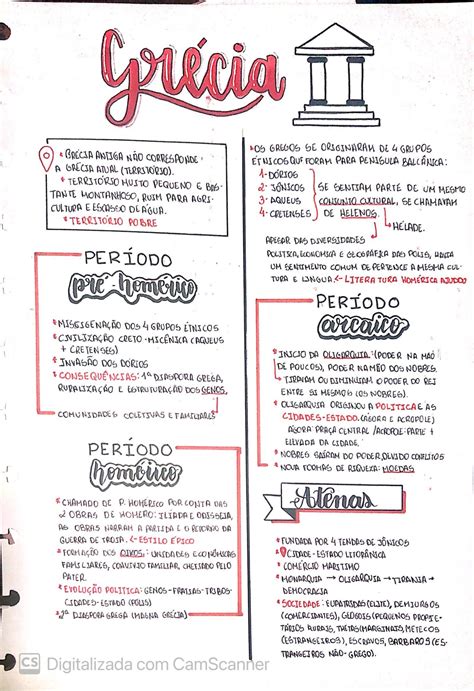 Grécia
* GRÉCIA ANTIGA NÃO CORRESPONDE
A GRÉCIA ATUAL (TERRITÓRIO).
* TERRITÓRIO MUITO PEQUENO E BAS-
TANTE MONTANHOSO, RUIM PARA AGRI-
CULTURA E ESCASSO DE ÁGUA.
* TERRITÓRIO POBRE
PERÍODO
pré-homérico
* MISCIGENAÇÃO DOS 4 GRUPOS ÉTNICOS
* CIVILIZAÇÃO CRETO-MICÊNICA (AQUEUS
+ CRETENSES)
* INVASÃO DOS DÓRIOS
* CONSEQUÊNCIAS: 1ª DIASPORA GREGA,
RURALIZAÇÃO E ESTRUTURAÇÃO DOS GENOS.
COMUNIDADES COLETIVAS E FAMILIARES
PERÍODO
homérico
* CHAMADO DE P. HOMÉRICO POR CONTA DAS
2 OBRAS DE HOMERO: ILÍADA E ODISSEIA,
AS OBRAS NARRAM A PARTIDA E O RETORNO DA
GUERRA DE TROIA. ← ESTILO ÉPICO
* FORMAÇÃO DOS OIKOS: UNIDADES ECONÔMICAS
FAMILIARES, CONVIVIO FAMILIAR, CHEFIADO PELO
PATER.
* EVOLUÇÃO POLITICA: GENOS-FRATIAS-TRIBOS-
CIDADES-ESTADO (PÓLIS)
* 2ª DIASPORA GREGA (MAGNA GRÉCIA)
* OS GREGOS SE ORIGINARAM DE 4 GRUPOS
ÉTNICOS QUE FORAM PARA PENISULA BALCÂNICA:
1- DÓRIOS
2- JÔNICOS
3- AQUEUS
4- CRETENSES
SE SENTIAM PARTE DE UM MESMO
CONJUNTO CULTURAL, SE CHAMARAM
DE HELENOS.
HÉLADE.
APESAR DAS DIVERSIDADES
POLITICA, ECONOMICA E GEOGRAFIA DAS PÓLIS, HAVIA
UM SENTIMENTO COMUM DE PERTENCE A MESMA CUL-
TURA E LINGUA ← LITERATURA HOMÉRICA AJUDOU
PERÍODO
arcaico
* INICIO DA OLIGARQUIA: (PODER NA MÃO
DE POUCOS), PODER NA MÃO DOS NOBRES.
TIRAVAM OU DIMINUIAM O PODER DO REI
ENTRE SI MESMOS (OS NOBRES).
* OLIGARQUIA ORIGINOU A POLITICA E AS
CIDADES-ESTADO. (ÁGORA E ACRÓPOLE)
ÁGORA PRAÇA CENTRAL / ACRÓPOLE: PARTE +
ELEVADA DA CIDADE.
* NOBRES SAÍRAM DO PODER, DEVIDO CONFLITOS
* NOVA FORMAS DE RIQUEZA: MOEDAS
Atenas
* FUNDADA POR 4 TENDAS DE JÔNICOS
* CIDADE-ESTADO LITORÂNICA
* COMÉRCIO MARITIMO
* MONARQUIA → OLIGARQUIA → TIRANIA →
DEMOCRACIA
* SOCIEDADE: EUPATRIDAS (ELITE), DEMIURGOS
(COMERCIANTES), GEÓGIS (PEQUENOS PROPIE-
TÁRIOS RURAIS, THETAS (MARGINAIS), METECOS
(ESTRANGEIROS), ESCRAVOS, BARBAROS (ES-
TRANGEIROS NÃO-GREGO).
CS Digitalizada com CamScanner